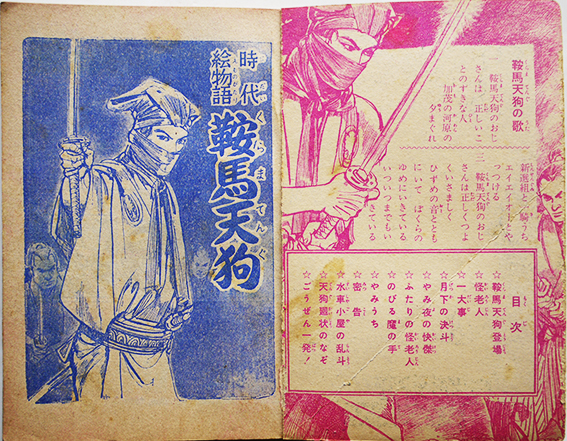 鞍馬天狗の歌
一 鞍馬天狗のおじ
さんは 正しいこ
とのすきな人
加茂の河原の
夕まぐれ
新選組と一騎うち
エイエイオーとや
っつける
二 鞍馬天狗のおじ
さんは 正しくつよ
くいさましく
ひずめの音ととも
にいて ぼくらの
ゆめにいきている
いついつまでもい
きている
目次
☆鞍馬天狗登場
☆怪老人
☆一大事
☆月下の決斗
☆やみ夜の快傑
☆ふたりの怪老人
☆のびる魔の手
☆やみうち
☆密告
☆水車小屋の乱斗
☆天狗廻状のなぞ
☆ごうぜん一発!
時代
絵物語
鞍馬天狗
くらまてんぐ